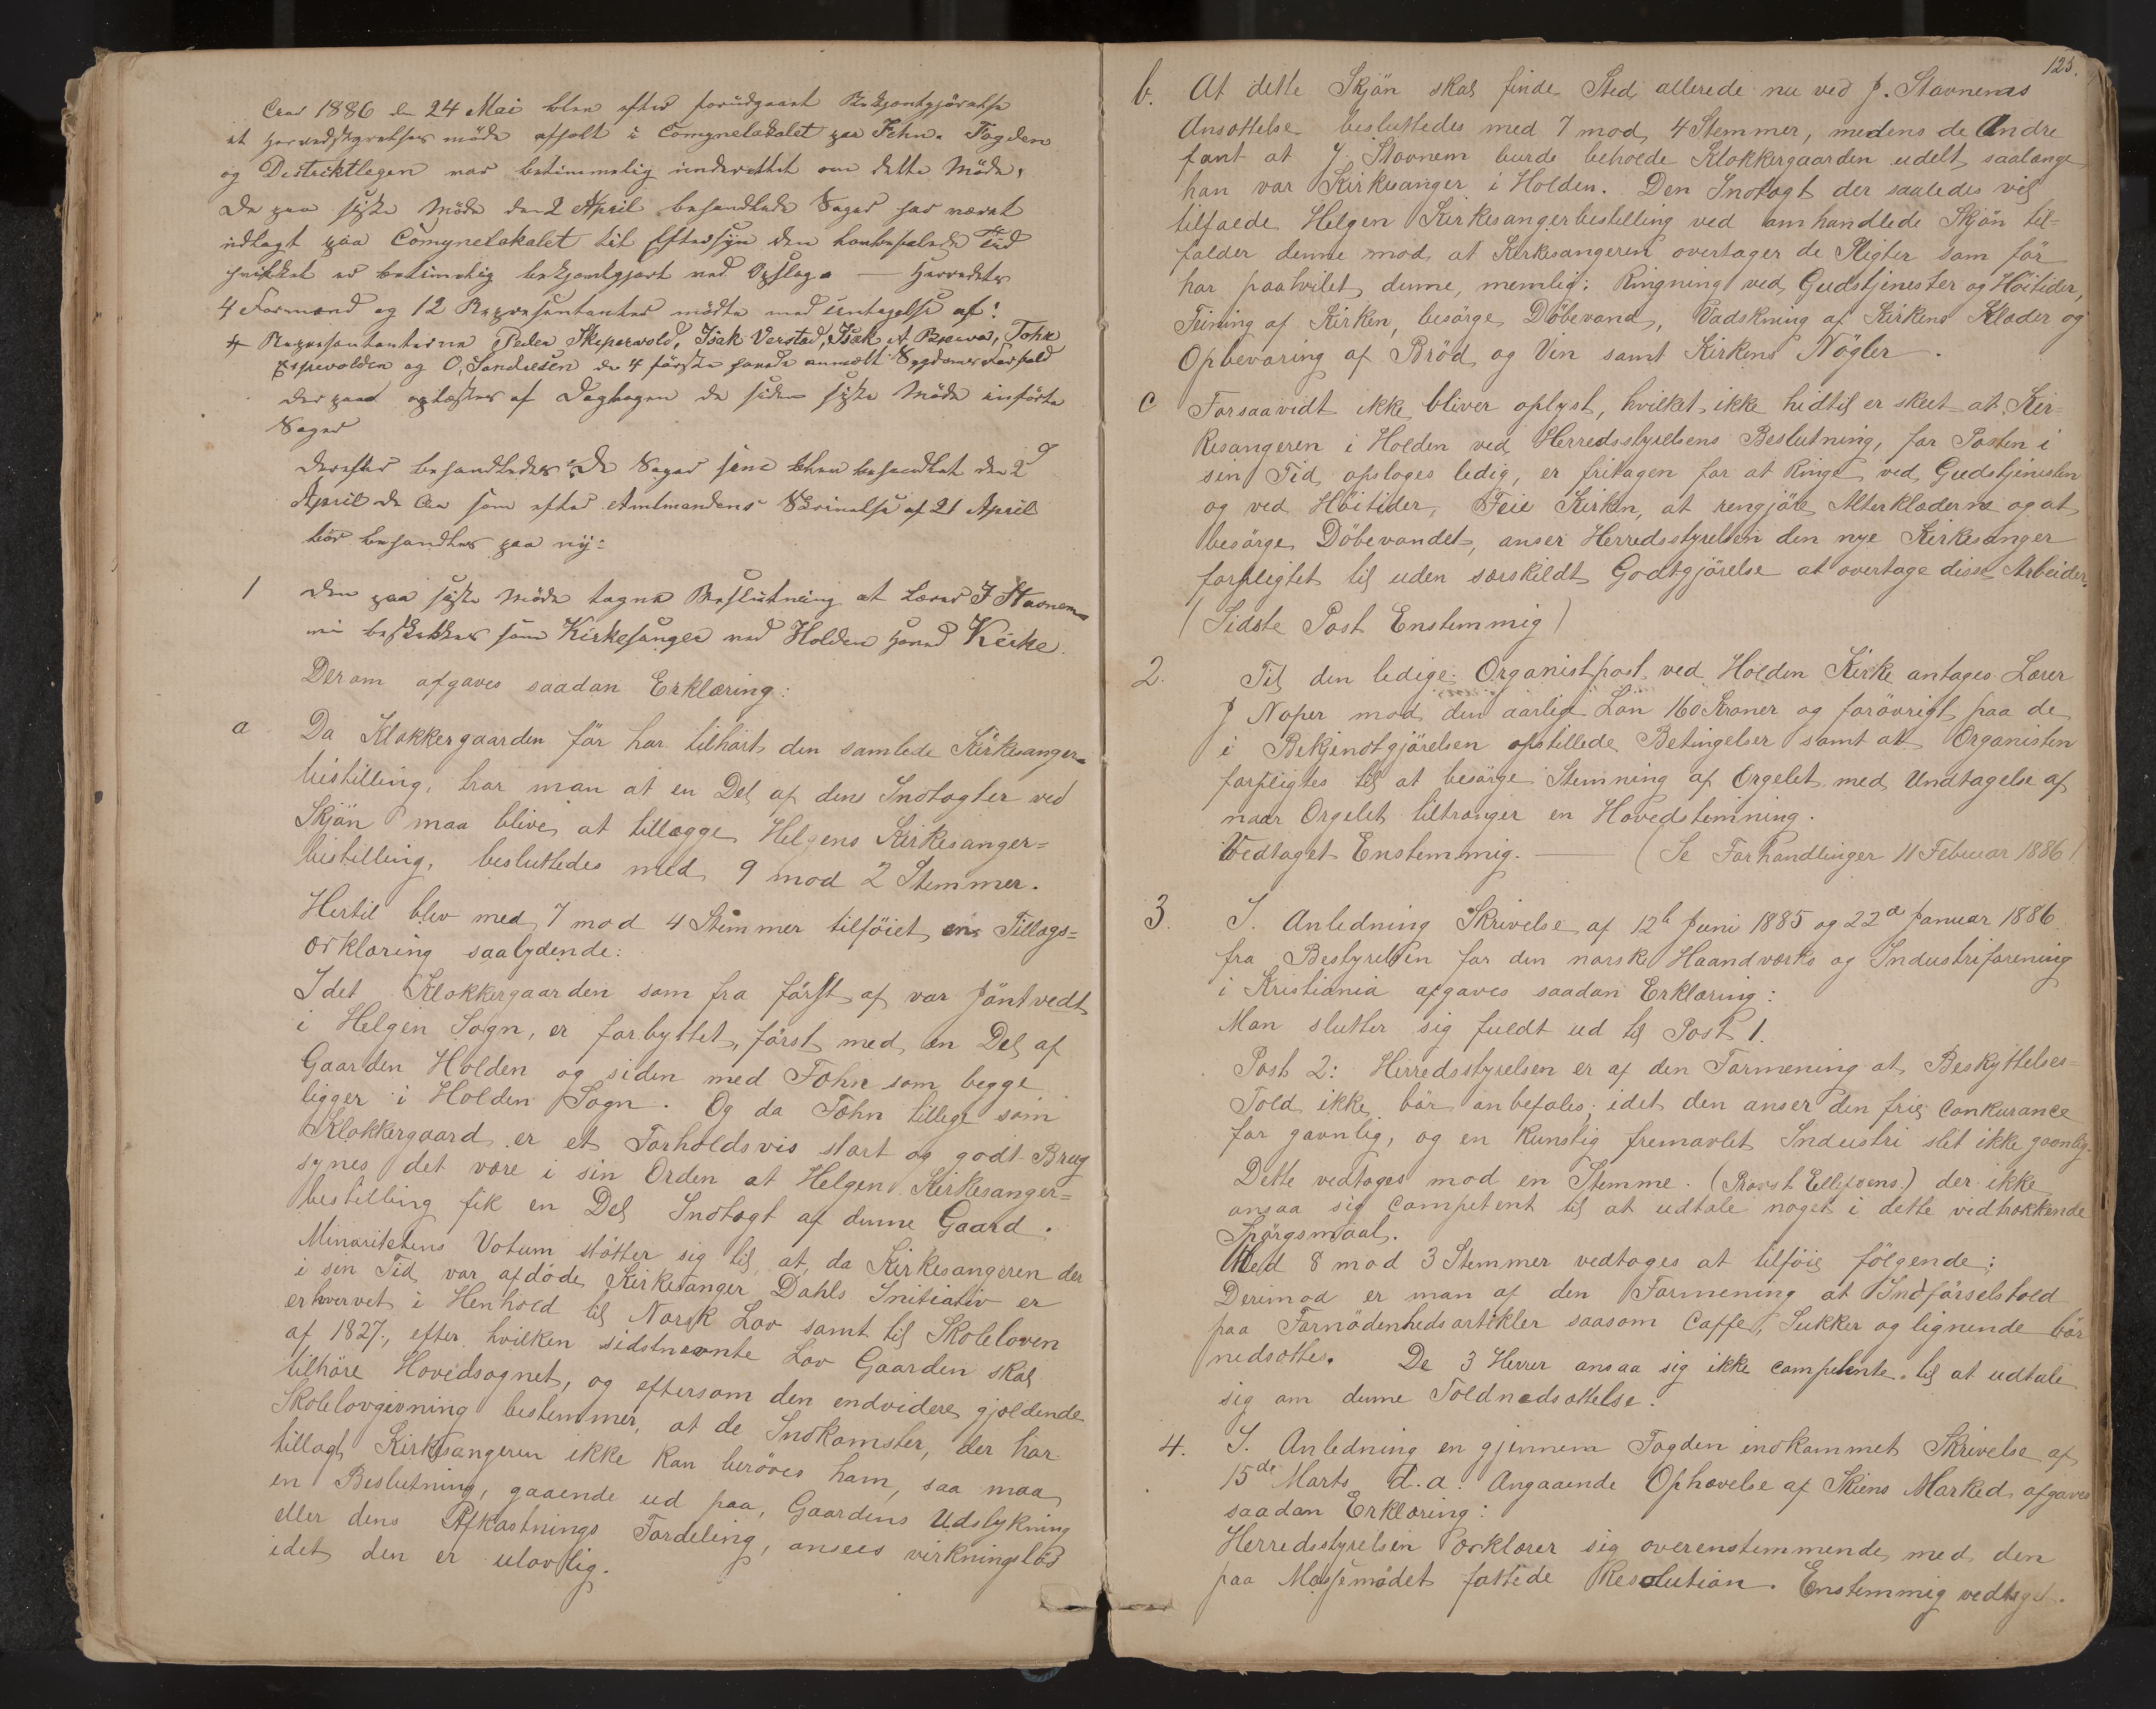 Aar 1886 den 24 Mai blev efter forudgaaet Bekjentgjørelse
et Herredsstyrelses møde afholt i Comynelokalet paa Fehn. Fogden
og Distriktlægen var betimmelig underrettet om dette Møde.
De paa siste Møde den 2 April behandlede Sager har været
udlagt paa Comynelokalet til Eftersyn den lovbefalede Tid
hvilket er betimelig bekjentgjort ved Opslag. — Herredets
4 Formænd og 12 Repræsentanter mødte med untagelse af:
4 Repræsentanterne Peder Skepervold, Isak Verstad, Isak A
og O, Sandersen de 4 første havde anmelt Sygdomsforfald
der paa oplæstes af Dagbogen de siden siste Møde inførte
Sager
derefter behandledes: De Sager som blev behandlet den 2d
April de Aa som efter Amtmandens Skrivelse af 21 April
bör behandles paa ny:
1 Den paa siste Møde tagne Beslutning at Lærer J Stavnem
beskikkes som Kirkesanger ved Holden Hoved Kirke.
Derom afgaves saadan Erklæring:
a Da Klokkergaarden för har tilhört den samlede Kirkesanger=
bestilling, tror man at en Del af dens Indtægter ved
Skjön maa blive at tillægge Helgens Kirkesanger=
bestilling, besluttedes med 9 mod 2 Stemmer.
Hertil blev med 7 mod 4 Stemmer tilföiet en Tillægs=
erklæring saalydende:
Idet Klokkergaarden som fra förſt af var Jöntvedt
i Helgen Sogn, er forbyttet, först med en Del af
Gaarden Holden og siden med Fæhn som begge
ligger i Holden Sogn. Og da Fæhn tillige som
Klokkergaard er et Forholdsvis stort og godt Brug
synes det være i sin Orden at Helgen Kirkesanger=
bestilling fik en Del Indtægt af denne Gaard.
Minoritetens Votum støtter sig til, at, da Kirkesangeren der
i sin Tid var afdøde Kirkesanger Dahls Initiativ er
erhvervet i Henhold til Norsk Lov samt til Skoleloven
af 1827, efter hvilken sidstnævnte Lov Gaarden skal
tilhöre Hovedsognet, og eftersom den endvidere gjældende
Skolelovgivning bestemmer, at de Indkomster, der har
tillagt Kirksangeren ikke kan berøves ham, saa maa
en Beslutning, gaaende ud paa, Gaardens Udstykning
eller dens Afkastnings Fordeling, ansees virkningsløs
idet den er ulovlig.
125.
b. At dette Skjön skal finde Sted allerede nu ved J. Stavnems
Ansættelse besluttedes med 7 mod 4 Stemmer, medens de Andre
fant at J. Stavnem burde beholde Klokkergaarden udelt, saalænge
han var Kirkesanger i Holden. Den Indtægt der saaledes vil
tilfalde Helgen Kirkesangerbestilling ved omhandlede Skjön til=
falder denne mod, at Kirkesangeren overtager de Pligter som för
har paahvilet denne, nemlig: Ringning ved Gudstjenester og Höitider,
Feining af Kirken, besörge Döbevand, Vadskning af Kirkens Klæder og
Opbevaring af Bröd og Vin samt Kirkens Nögler.
c Forsaavidt ikke bliver oplyst, hvilket ikke hidtil er skeet at Kir=
kesangeren i Holden ved Herredsstyrelsens Beslutning, før Posten i
sin Tid opsloges ledig, er fritagen for at Ringe ved Gudstjenesten
og ved Höitider, Feie Kirken, at rengjöre Alterklæderne og at
besörge Döbevandet, anser Herredsstyrelsen den nye Kirkesanger
forpligtet til uden særskildt Godtgjörelse at overtage disse Arbeider.
(Sidste Post Enstemmig)
2. Til den ledige Organistpost ved Holden Kirke antages Lærer
J Noper mod den aarlige Lön 160 Kroner og forövrigt paa de
i Bekjendtgjörelsen opstillede Betingelser samt at Organisten
forpligtes til at besörge Stemning af Orgelet med Undtagelse af
naar Orgelet tiltrænger en Hovedstemning.
Vedtaget Enstemmig. — (Se Forhandlinger 11 Februar 1886)
3. I. Anledning Skrivelse af 12te Juni 1885 og 22de Januar 1886.
fra Bestyrelsen for den norske Haandværks og Industriforening
i Kristiania afgaves saadan Erklæring:
Man slutter sig fuldt ud til Post 1.
Post 2: Herredsstyrelsen er af den Formening at Beskyttelses=
Told ikke bör anbefales, idet den anser den frie Conkurance
for gavnlig, og en Kunstig fremavlet Industri slet ikke gavnlig.
Dette vedtoges mod en Stemme. (Provst Ellefsens.) der ikke
ansaa sig Competent til at udtale noget i dette vidtrækkende
Spörgsmaal.
Med 8 mod 3 Stemmer vedtoges at tilföie fölgende:
Derimod er man af den Formening at Indförselstold
paa Fornödenhedsartikler saasom Caffe, Sukker og lignende bör
nedsættes. De 3 Herrer ansaa sig ikke competente til at udtale
sig om denne Toldnedsættelse.
4. I. Anledning en gjennem Fogden indkommet Skrivelse af
15de Marts d.a. Angaaende Ophævelse af Skiens Marked, afgaves
saadan Erklæring:
Herredsstyrelsen erklærer sig overenstemmende med den
paa Massemödet fattede Resolution. Enstemmig vedtaget.